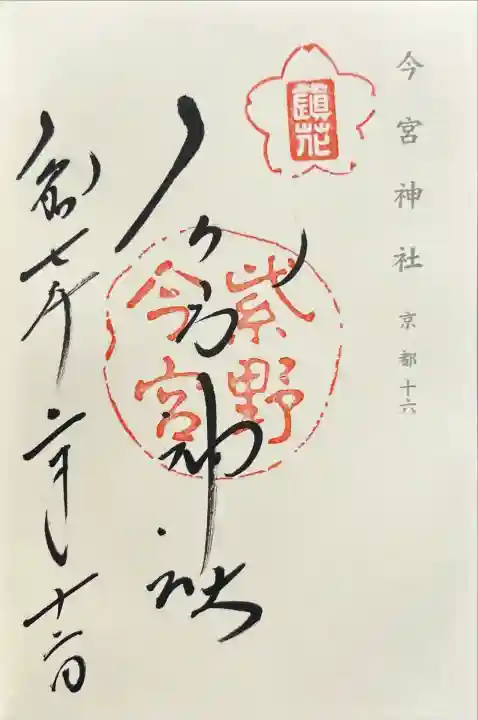 今宮神社 京都十六
鎮花
紫野
今宮
今宮神社
令和七年
十六日